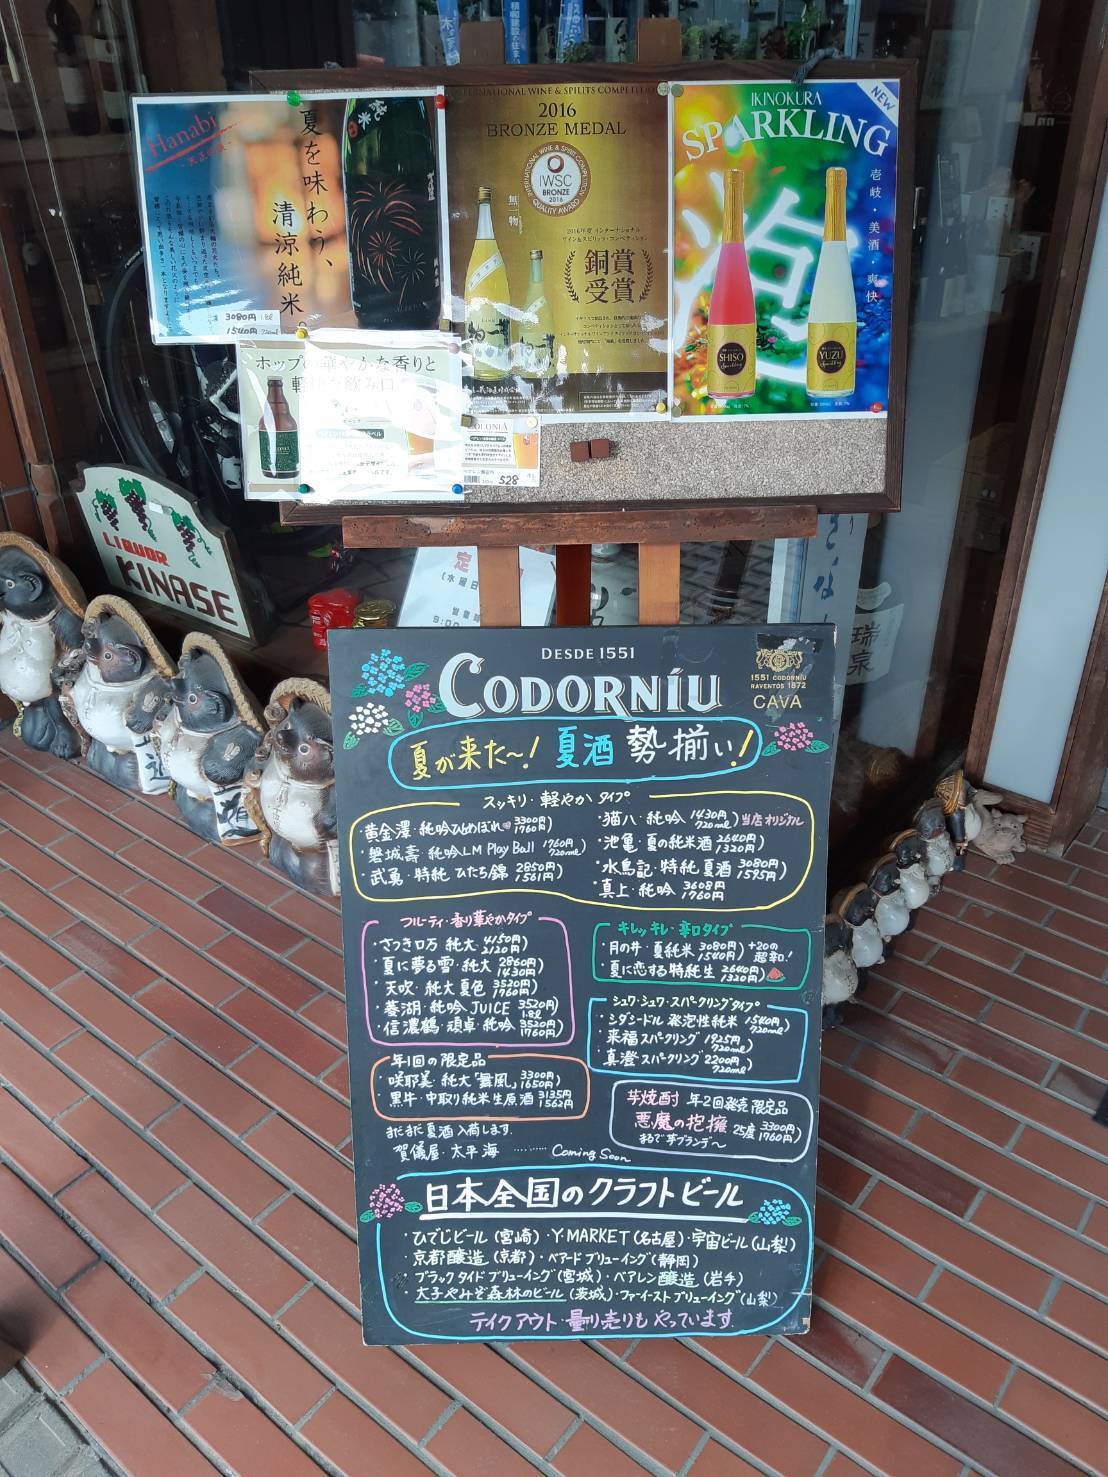 Hanabi
夏を味わう、
清涼純米。
純米
3080円 1.8L
1540円 720ml
INTERNATIONAL WINE & SPIRITS COMPETITION
2016
BRONZE MEDAL
IWSC
BRONZE
2016
QUALITY AWARD
無一物
銅賞
受賞
IKINOKURA
SPARKLING
NEW
壱岐・美酒・爽快
泡
SHISO
Sparkling
YUZU
Sparkling
ホップの華やかな香りと
軽快な飲み口
528
LIQUOR
KINASE
定
(水曜日
瑞泉
DESDE 1551
CODORNÍU
1551 CODORNÍU
RAVENTOS 1872
CAVA
夏が来た〜! 夏酒 勢揃い!
スッキリ・軽やか タイプ
・黄金澤・純吟ひとめぼれ 3300円 1760円)
・磐城壽・純吟LM Play Ball 1760円 720ml)
・武勇・特純 ひたち錦 2850円 1561円)
・猫八・純吟 1430円 720ml) 当店オリジナル
・池亀・夏の純米酒 2640円 1320円)
・水鳥記・特純 夏酒 3080円 1595円)
・真上・純吟 3608円 1760円
フルーティ・香り華やかタイプ
・さつき口万 純大 4150円 2120円)
・夏に夢る雪・純大 2860円 1430円)
・天吹・純大 夏色 3520円 1760円)
・萎湖・純吟 JUICE 3520円) 1.8L
・信濃鶴・頑卓・純吟 3520円 1760円)
キレッキレ・辛口タイプ
・月の井・夏純米 3080円 1540円) +20の超辛口!
・夏に恋する特純生 2640円 1320円)
シュワ・シュワ・スパークリングタイプ
・シダシードル 発泡性純米 1540円 720ml)
・来福スパークリング 1925円 720ml)
・真澄スパークリング 2200円 720ml)
年1回の限定品
・咲耶美・純大「舞風」 3300円 1650円)
・黒牛・中取り純米生原酒 3135円 1562円
芋焼酎 年2回発売 限定品
悪魔の抱擁 25度 3300円 1760円)
まるで芋ブランデー〜
まだまだ夏酒入荷します。
賀儀屋・太平海 ……… Coming Soon
日本全国のクラフトビール
・ひでじビール(宮崎)・Y.MARKET(名古屋)・宇宙ビール(山梨)
・京都醸造(京都)・ベアード ブリューイング(静岡)
・ブラックタイド ブリューイング(宮城)・ベアレン醸造(岩手)
・大子やみぞ森林のビール(茨城)・ファーイーストブリューイング(山梨)
テイクアウト・量り売りも やっています。